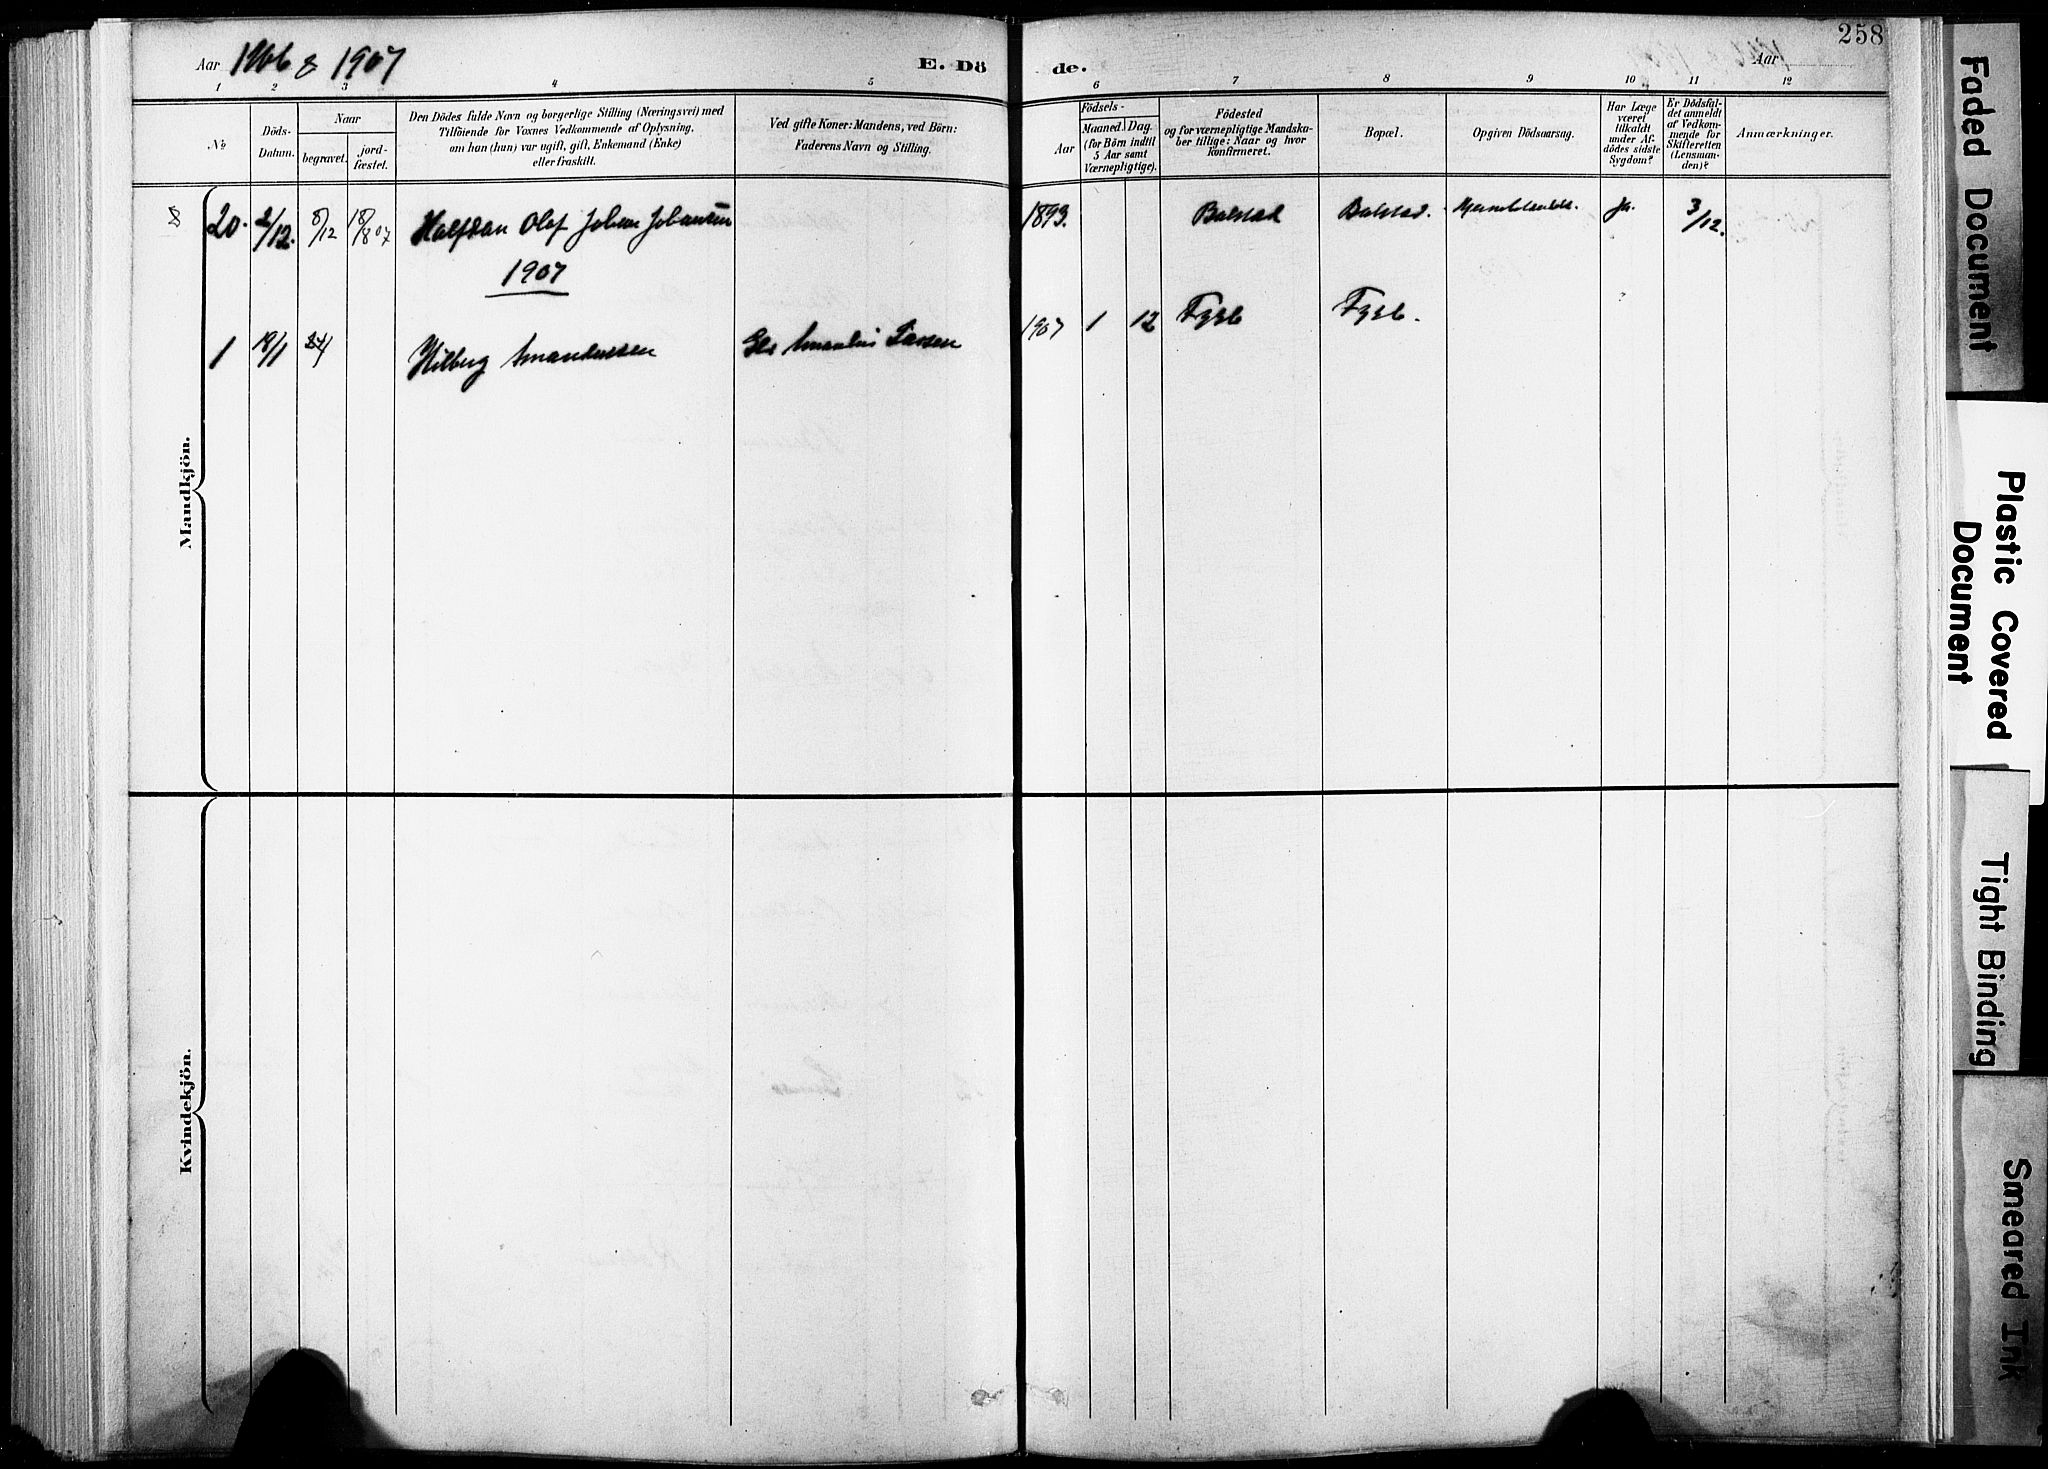 Aar 1906 & 1907
E. Dö de.
Aar
258
1 2 3 4 5 6 7 8 9 10 11 12
No
Döds-
Datum.
Naar
begravet.
jord-
fæstet.
Den Dödes fulde Navn og borgerlige Stilling (Næringsvei) med
Tilföiende for Voxnes Vedkommende af Oplysning,
om han (hun) var ugift, gift, Enkemand (Enke)
eller fraskilt.
Ved gifte Koner: Mandens, ved Börn:
Faderens Navn og Stilling.
Födsels-
Aar
Maaned. Dag.
(for Börn indtil
5 Aar samt
Værnepligtige).
Födested
og for værnepligtige Mandska-
ber tillige: Naar og hvor
konfirmeret.
Bopæl.
Opgiven Dödsaarsag.
Har Læge
været
tilkaldt
under Af-
dödes sidste
Sygdom?
Er Dödsfal-
det anmeldt
af Vedkom-
mende for
Skifteretten
(Lensman-
den)?
Anmærkninger.
20. 2/12. 8/12 18/8 07 Halfdan Olaf Johan Johansen 1893. Balstad Balstad. Ja. 3/12.
1907
1 19/1 Hilberg Amandussen Larsen 1907 1 12 Fygle Fygle.
Mandkjön.
Kvindekjön.
Faded Document
Plastic Covered
Document
Tight Binding
Smeared Ink